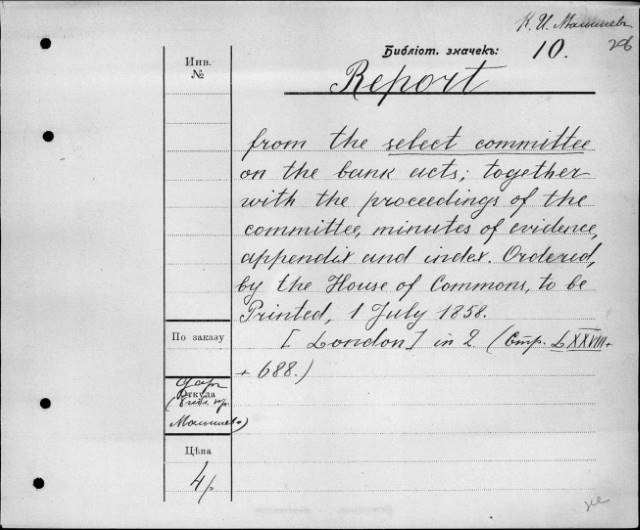 К. И.
26
Библіот. значекъ: 10.
Report
Инв.
№
from the select committee
on the bank acts; together
with the proceedings of the
committee, minutes of evidence,
appendix and index. Ordered,
by the House of Commons, to be
Printed, 1 July 1858.
[London] in 2 (Стр. LXXVIII+
+ 688.)
По заказу
даръ
Откуда
Цѣна
4р